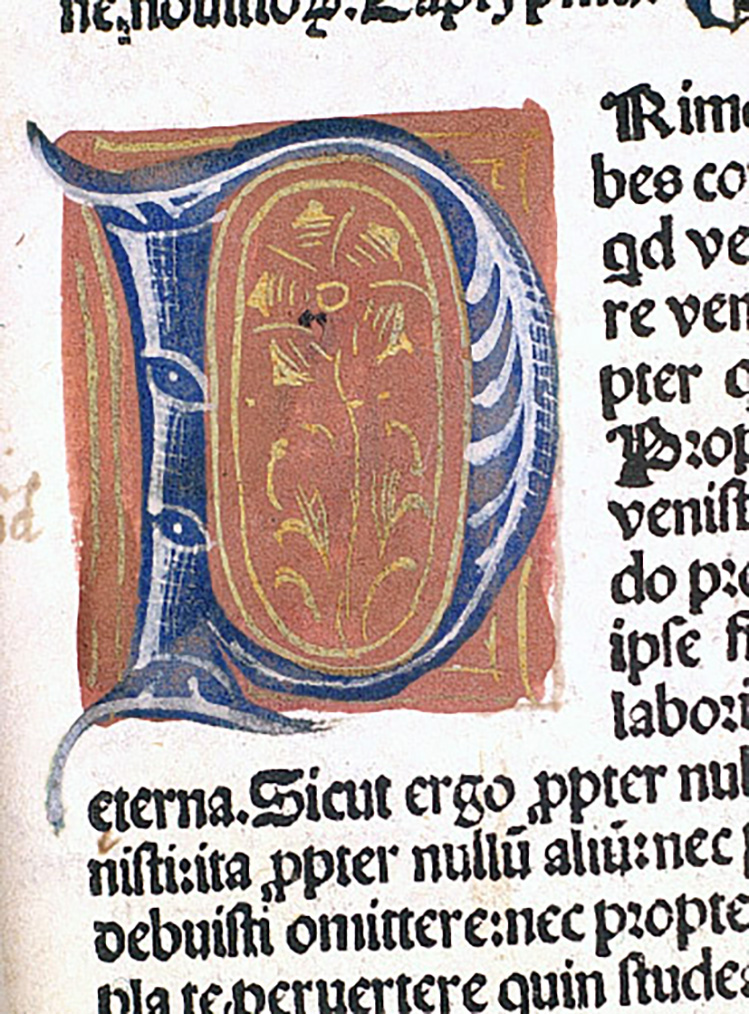 P
Rimo
bes co
qd ve
re ven
pter q
Prop
veniſt
do pre
ipſe fi
labori
eterna. Sicut ergo ꝓpter nul
niſti: ita ꝓpter nullū aliū: nec p
debuiſti omittere: nec propte
pla te pervertere quin ſtudes